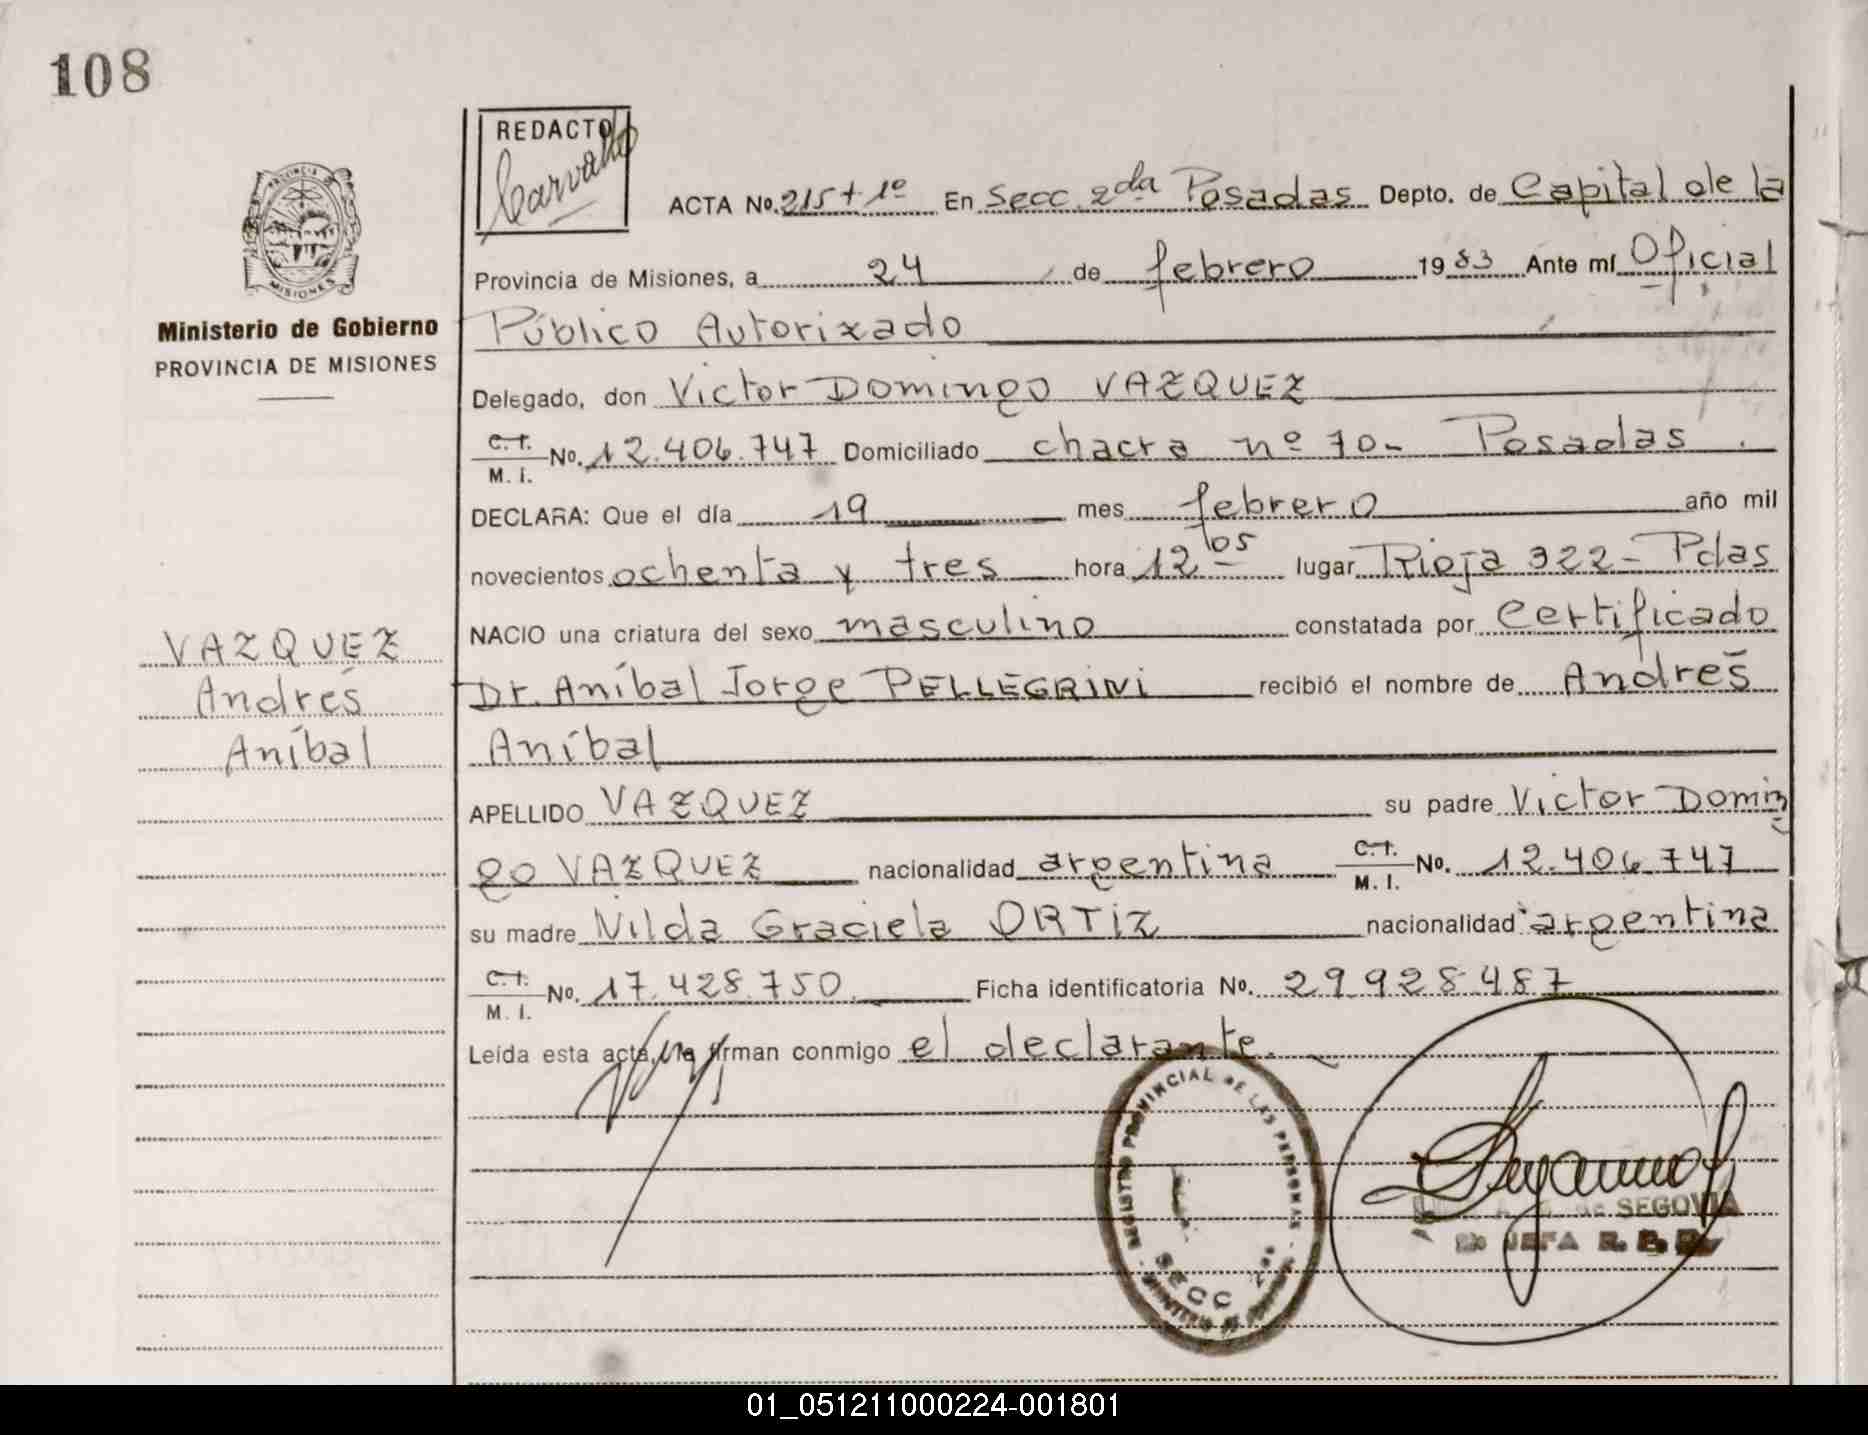 108
REDACTO
Carvallo
PROVINCIA DE
MISIONES
Ministerio de Gobierno
PROVINCIA DE MISIONES
ACTA No. 215 tº 1º En Secc. 2da Posadas Depto. de Capital de la
Provincia de Misiones, a 24 de febrero 1983 Ante mí Oficial
Público Autorizado
Delegado, don Victor Domingo VAZQUEZ
C.I.
M. I. No. 12.406.747 Domiciliado chacra nº 70- Posadas.
DECLARA: Que el día 19 mes febrero año mil
novecientos ochenta y tres hora 12 05 lugar Rioja 322- Pdas
NACIO una criatura del sexo masculino constatada por Certificado
Dr. Aníbal Jorge PELLEGRINI recibió el nombre de Andrés
Aníbal
VAZQUEZ
Andrés
Aníbal
APELLIDO VAZQUEZ su padre Victor Domin
go VAZQUEZ nacionalidad argentina C.I. M. I. No. 12.406.747
su madre Nilda Graciela ORTIZ nacionalidad argentina
C.I.
M. I. No. 17.428.750 Ficha identificatoria No. 29928487
Leída esta acta, la firman conmigo el declarante.
REGISTRO PROVINCIAL DE LAS PERSONAS
SECC 2da
DE SEGOVIA
JEFA R. P. P.
01_051211000224-001801